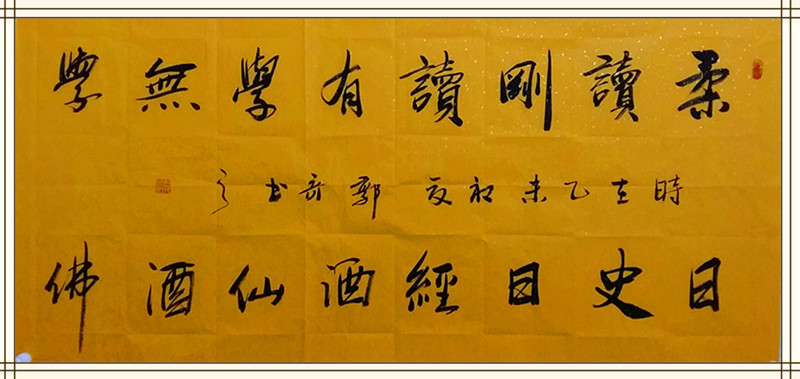 柔日
讀史
剛日
讀經
有酒
學仙
無酒
學佛
時在乙未初夏郭书之